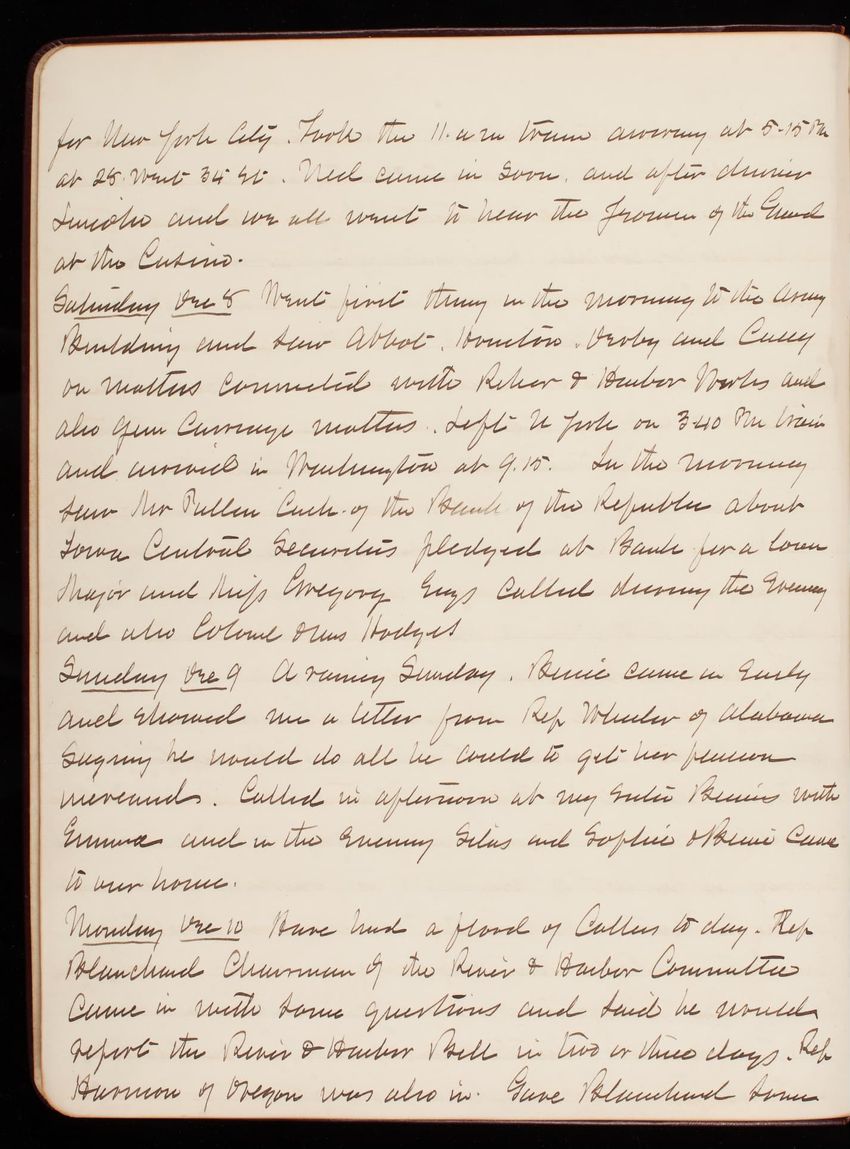 for New York City. Took the 11 a m train arriving at 5-15 PM
at 28 West 34 St. Ned came in soon, and after dinner
Lincoln and we all went to hear the Yeomen of the Guard
at the Casino.
Saturday Dec 8 Went first thing in the morning to the Army
Building and saw Abbot, Houston, Derby and Casey
on matters connected with River & Harbor Works and
also Gun Carriage matters. Left N York on 3-40 PM train
and arrived in Washington at 9.15. In the morning
saw Mr Pullen Cash. of the Bank of the Republic about
Iowa Central Securities pledged at Bank for a loan
Major and Miss Gregory Engs called during the Evening
and also Colonel & Mrs Hodges
Sunday Dec 9 A rainy Sunday. Benie came in Early
and showed me a letter from Rep Wheeler of Alabama
saying he would do all he could to get her pension
increased. Called in afternoon at my sister Benies with
Emma and in the Evening Silas and Sophie & Benie came
to our home.
Monday Dec 10 Have had a flood of Callers to day. Rep
Blanchard Chairman of the River & Harbor Committee
Came in with some questions and said he would
report the River & Harbor Bill in two or three days. Rep
Hermon of Oregon was also in. Gave Blanchard some